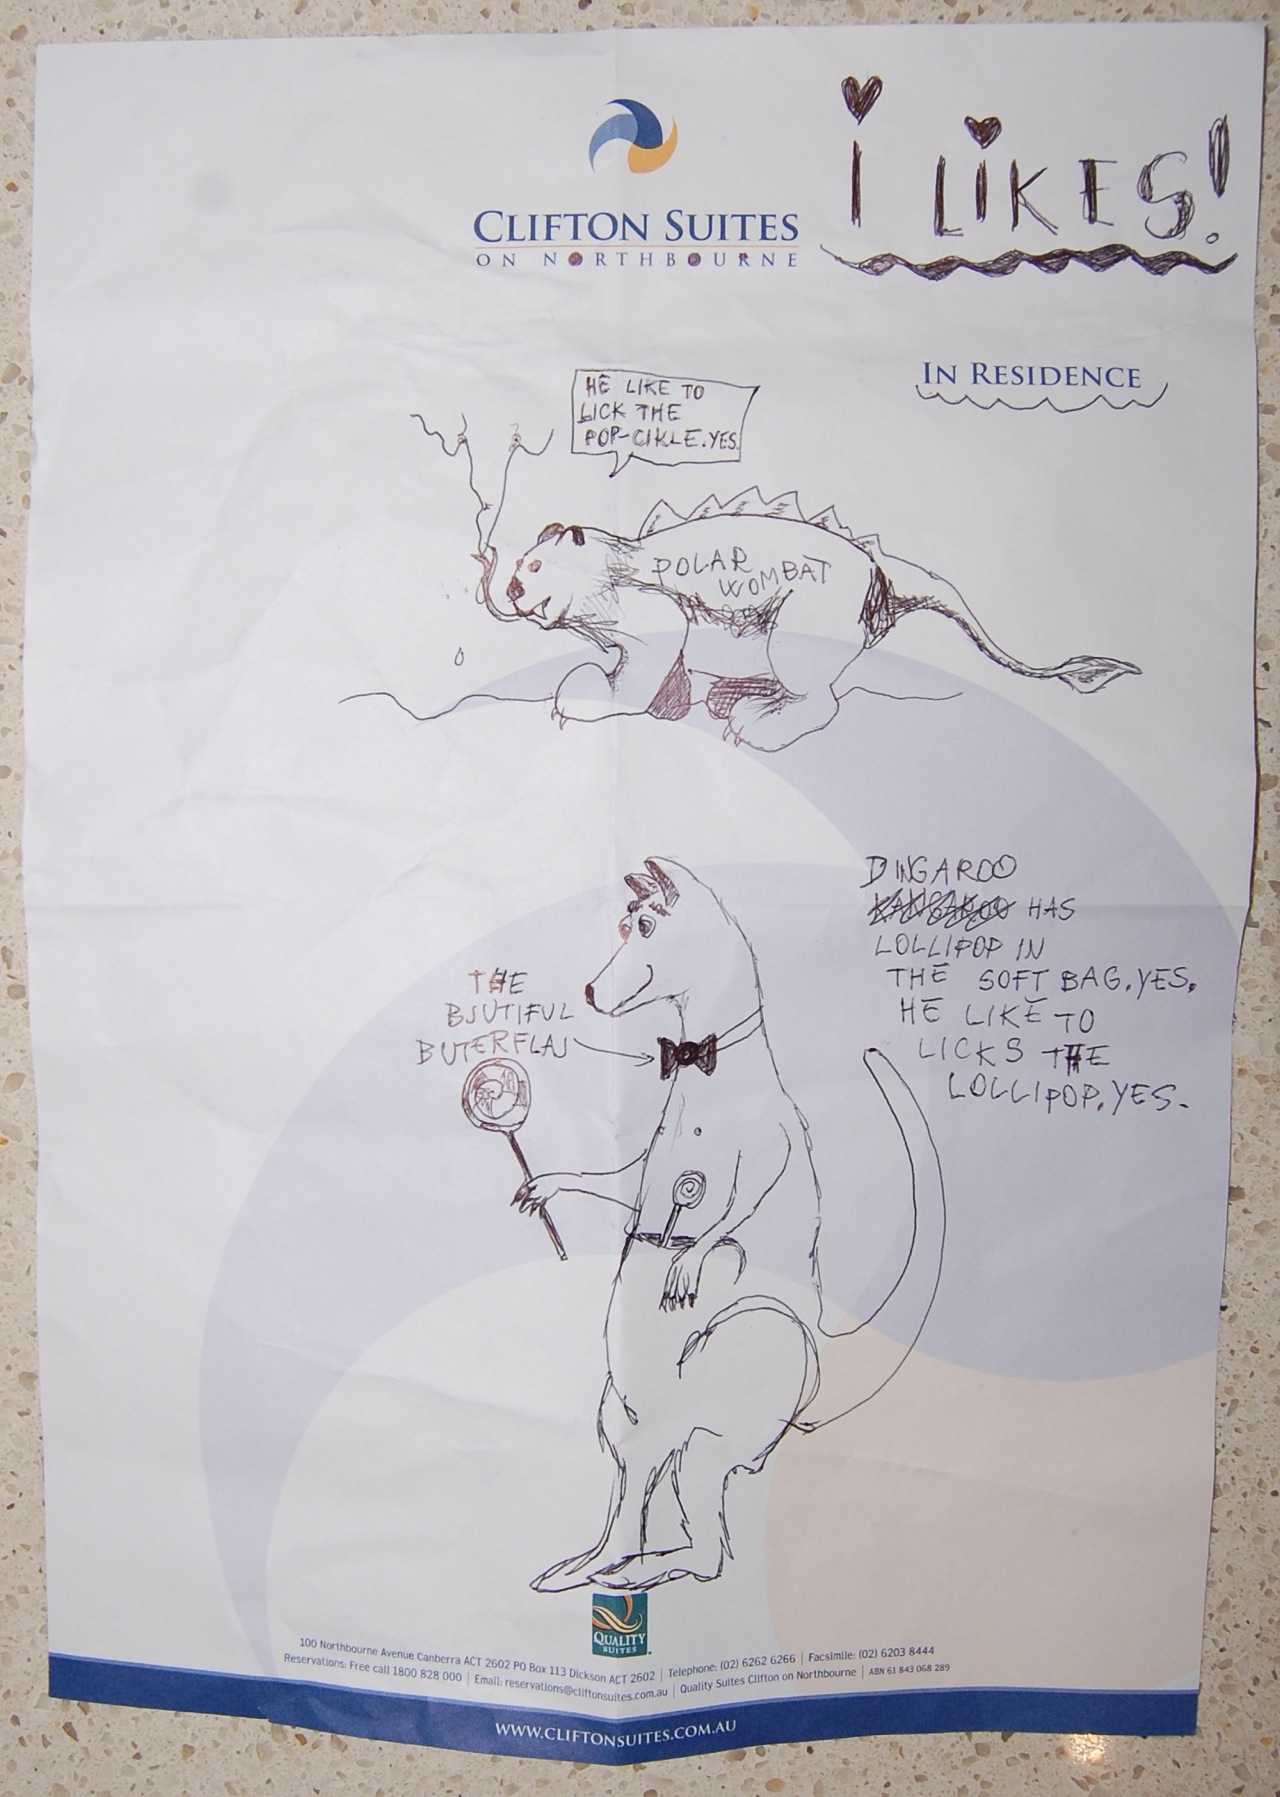 i LiKES!
CLIFTON SUITES
ON NORTHBOURNE
IN RESIDENCE
HE LIKE TO
LICK THE
POP-CIKLE.YES.
POLAR
WOMBAT
DINGAROO
KANGAROO HAS
LOLLIPOP IN
THE SOFT BAG.YES.
HE LIKE TO
LICKS THE
LOLLIPOP.YES.
THE
BJUTIFUL
BUTERFLAJ
QUALITY
SUITES
100 Northbourne Avenue Canberra ACT 2602 PO Box 113 Dickson ACT 2602 | Telephone: (02) 6262 6266 | Facsimile: (02) 6203 8444
Reservations: Free call 1800 828 000 | Email: reservations@cliftonsuites.com.au | Quality Suites Clifton on Northbourne | ABN 61 843 068 289
WWW.CLIFTONSUITES.COM.AU